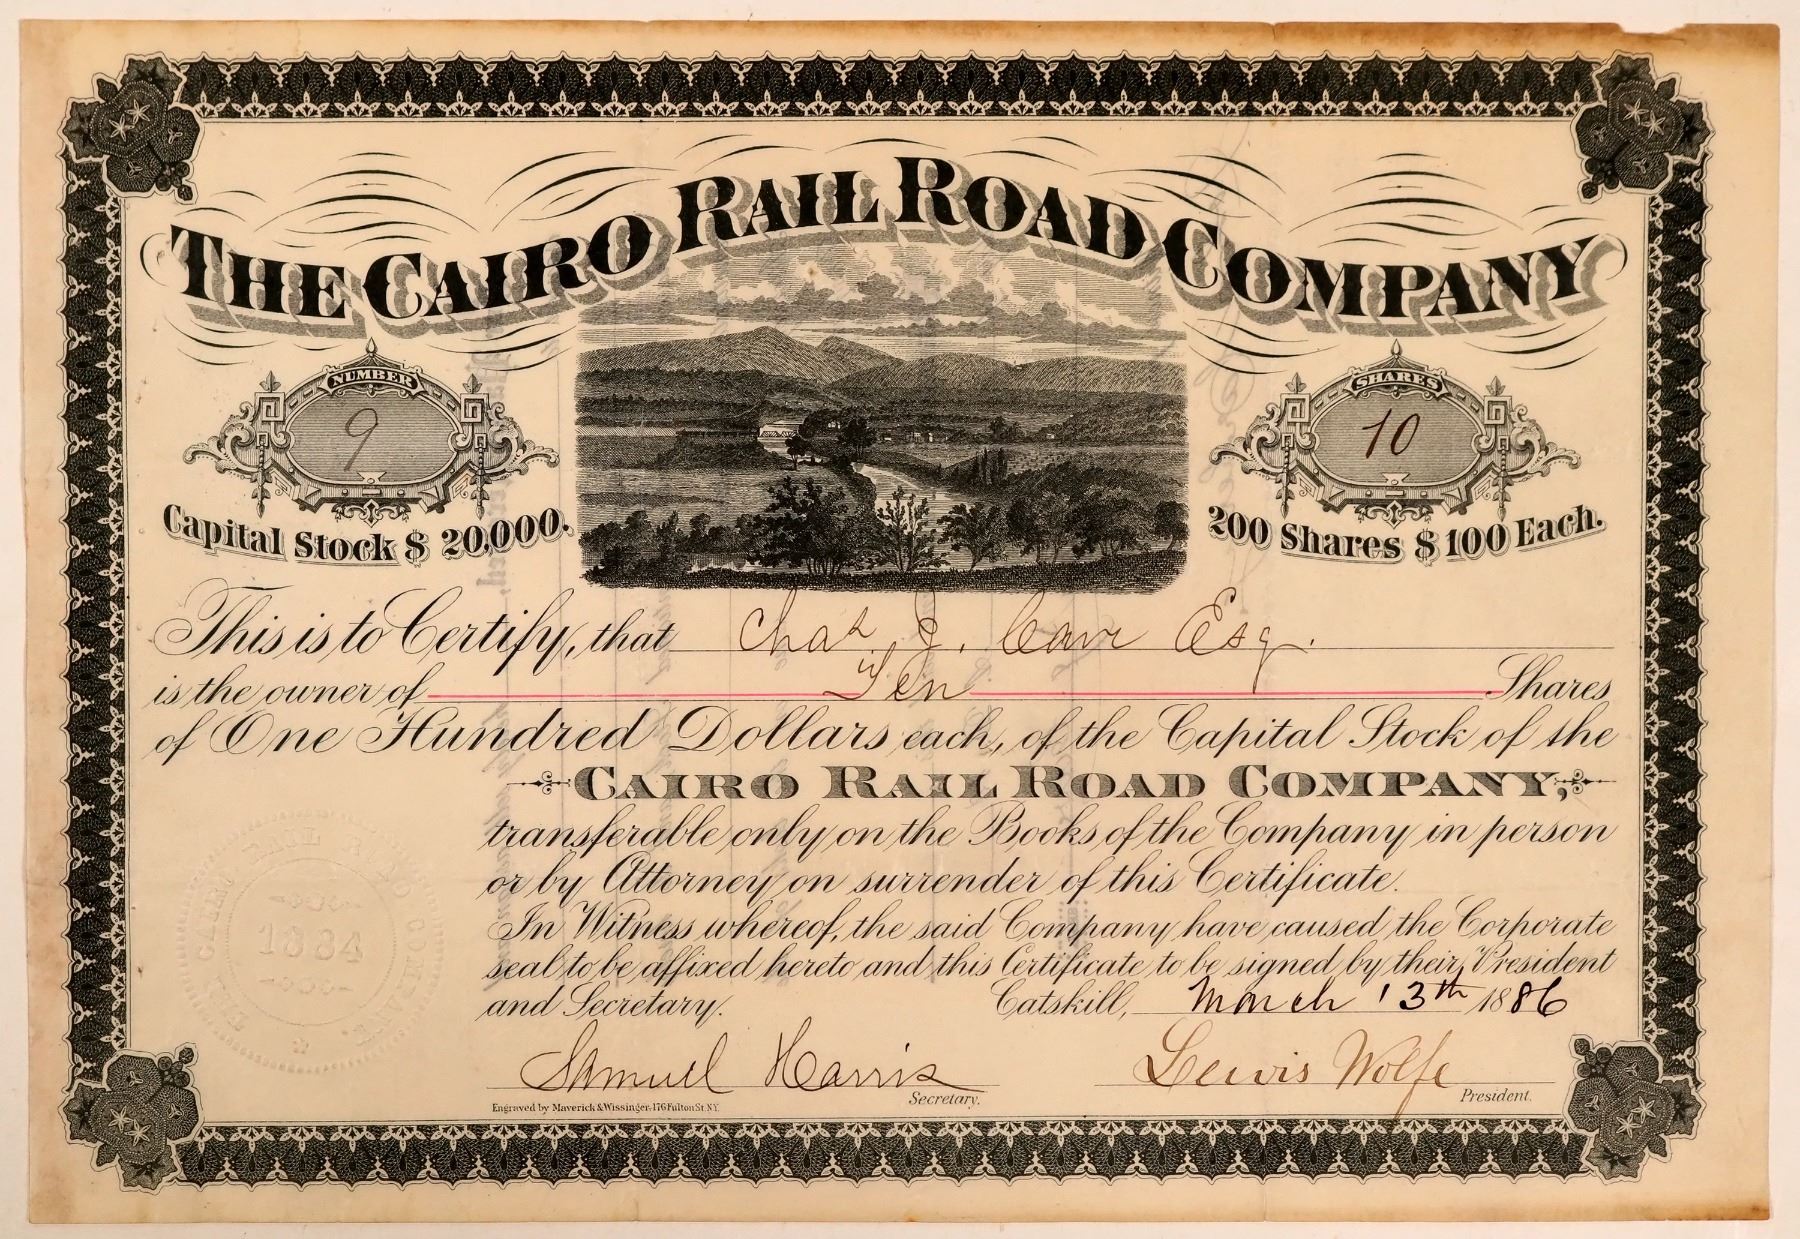 THE CAIRO RAIL ROAD COMPANY
NUMBER
9
SHARES
10
Capital Stock $ 20,000.
200 Shares $ 100 Each.
This is to Certify, that Chas. J. Esq.
is the owner of Ten Shares
of One Hundred Dollars each, of the Capital Stock of the
CAIRO RAIL ROAD COMPANY,
transferable only on the Books of the Company in person
or by Attorney on surrender of this Certificate.
In Witness whereof, the said Company have caused the Corporate
seal to be affixed hereto and this Certificate to be signed by their President
and Secretary. Catskill, March 13th 1886
THE CAIRO RAIL ROAD COMPANY
1884
Samuel Harris Lewis Wolfe
Secretary. President.
Engraved by Maverick & Wissinger, 176 Fulton St. N.Y.